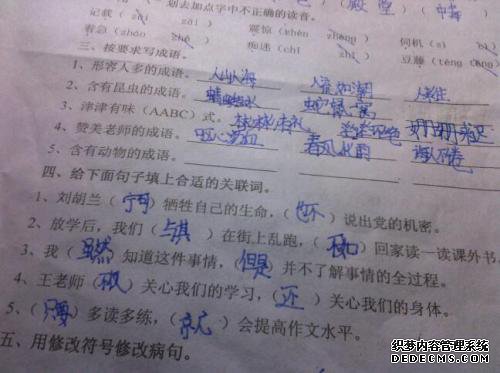 划去加点字中不正确的读音。
记载(zǎi zài) 震惊(hèn zhèng) 伺机(
着急(zháo zhē) 痴迷(chī zhī) 豆藤(téng
三、按要求写成语。
1、形容人多的成语。人山人海 人来人往
2、含有昆虫的成语。蜻蜓点水
3、津津有味(AABC)式。彬彬有礼 姗姗来迟
4、赞美老师的成语。呕心沥血 春风化雨 诲人不倦
5、含有动物的成语。
四、给下面句子填上合适的关联词。
1、刘胡兰(宁可)牺牲自己的生命,(也不)说出党的机密。
2、放学后,我们(与其)在街上乱跑,(不如)回家读一读课外书。
3、我(虽然)知道这件事情,(但是)并不了解事情的全过程。
4、王老师( )关心我们的学习,(还)关心我们的身体。
5、(只要)多读多练,(就)会提高作文水平。
五、用修改符号修改病句。
本文档内容管理系统
http://www.qhxdr.com